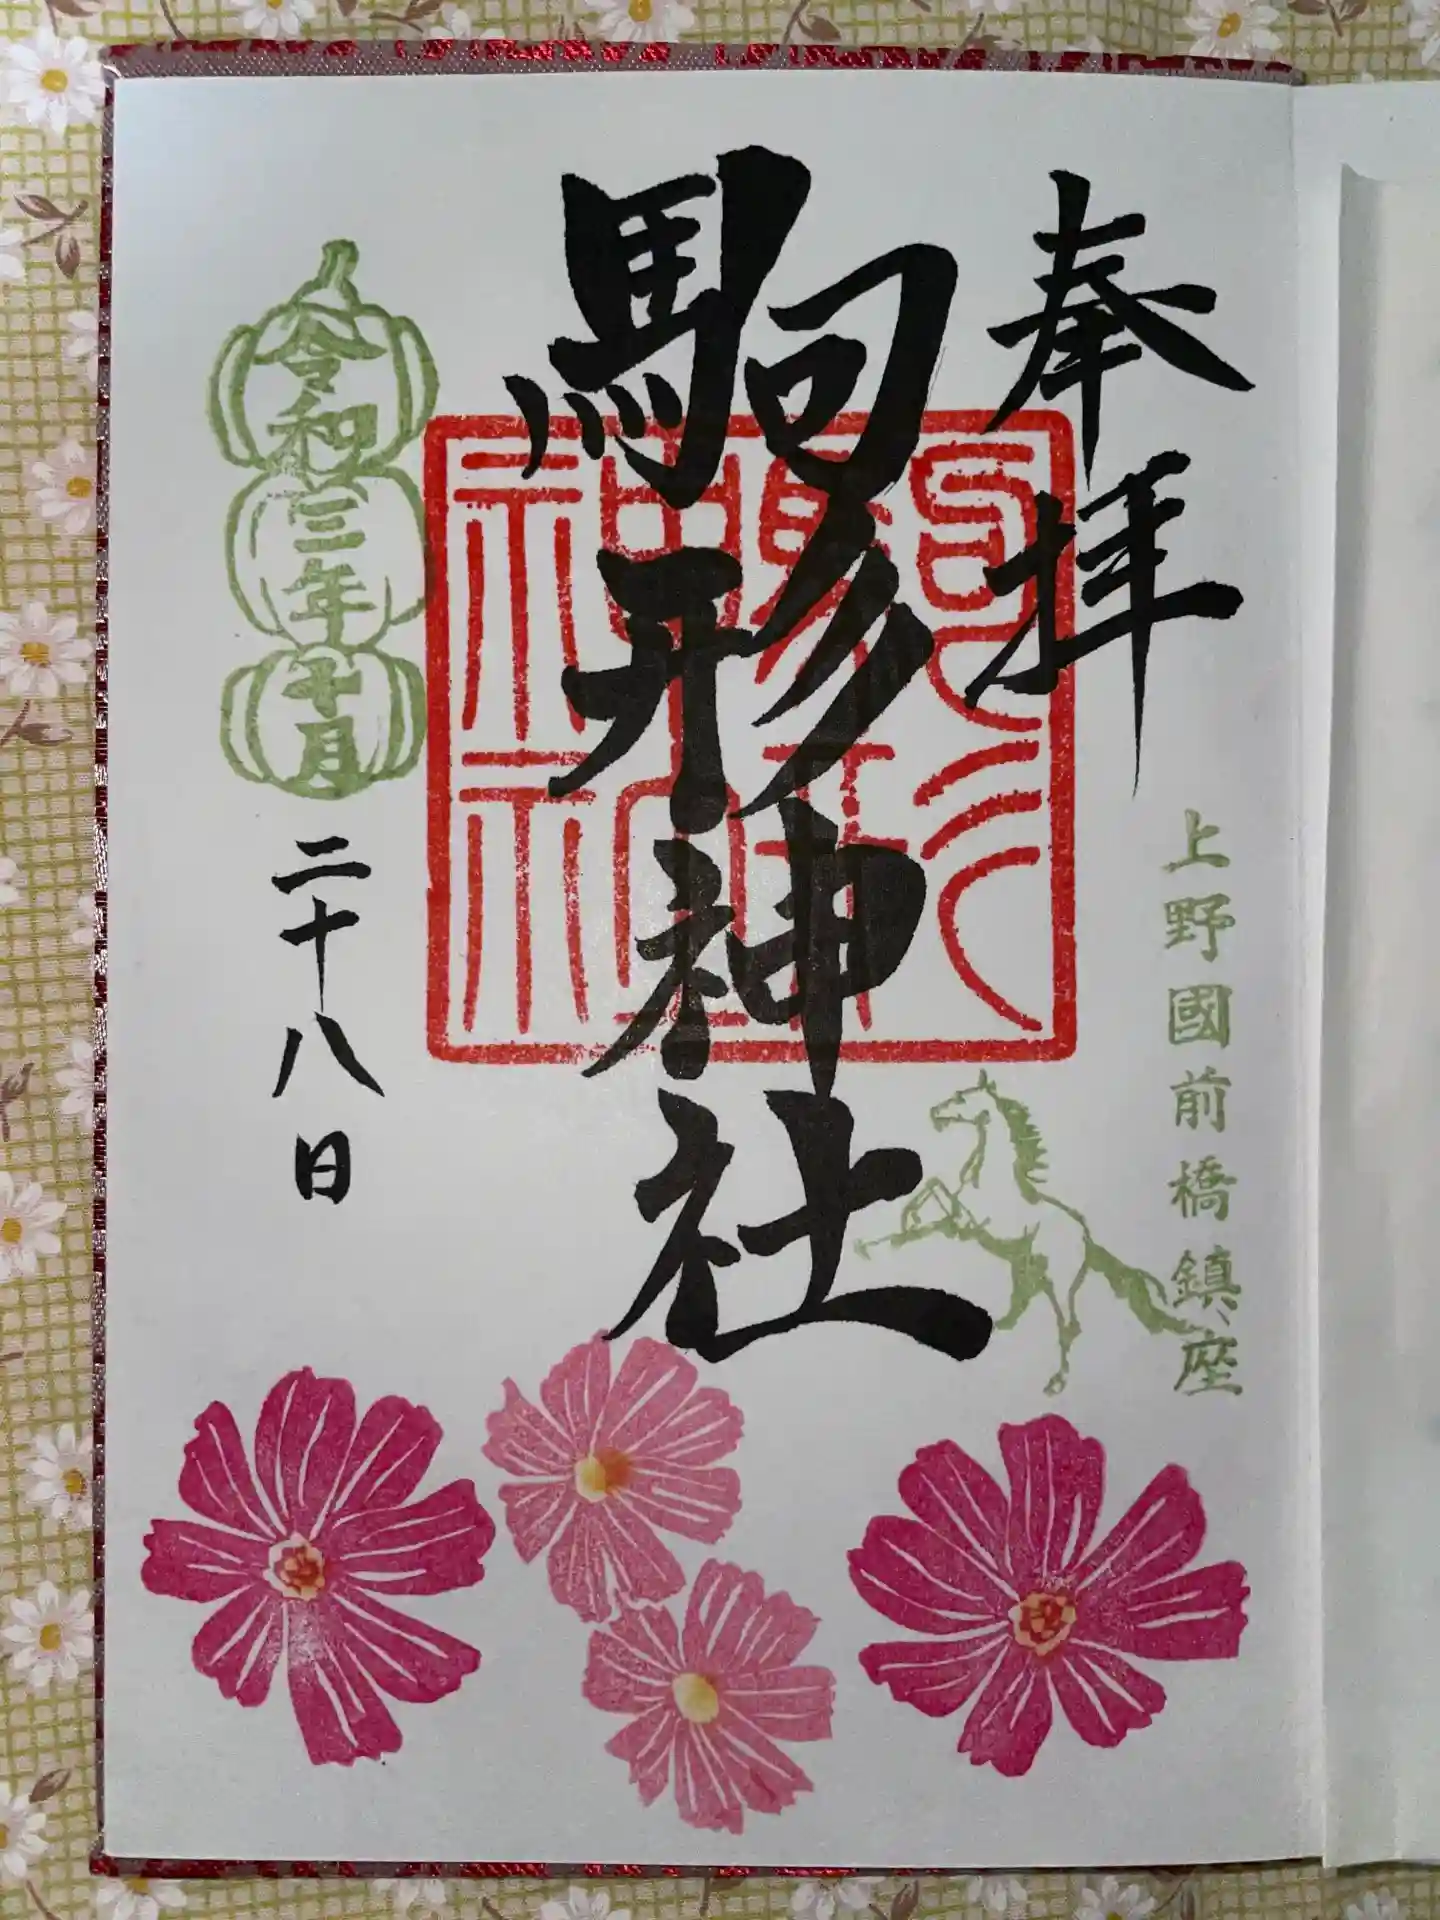 奉拝
上野國前橋鎮座
駒形神社
駒形神社
令和三年十月
二十八日